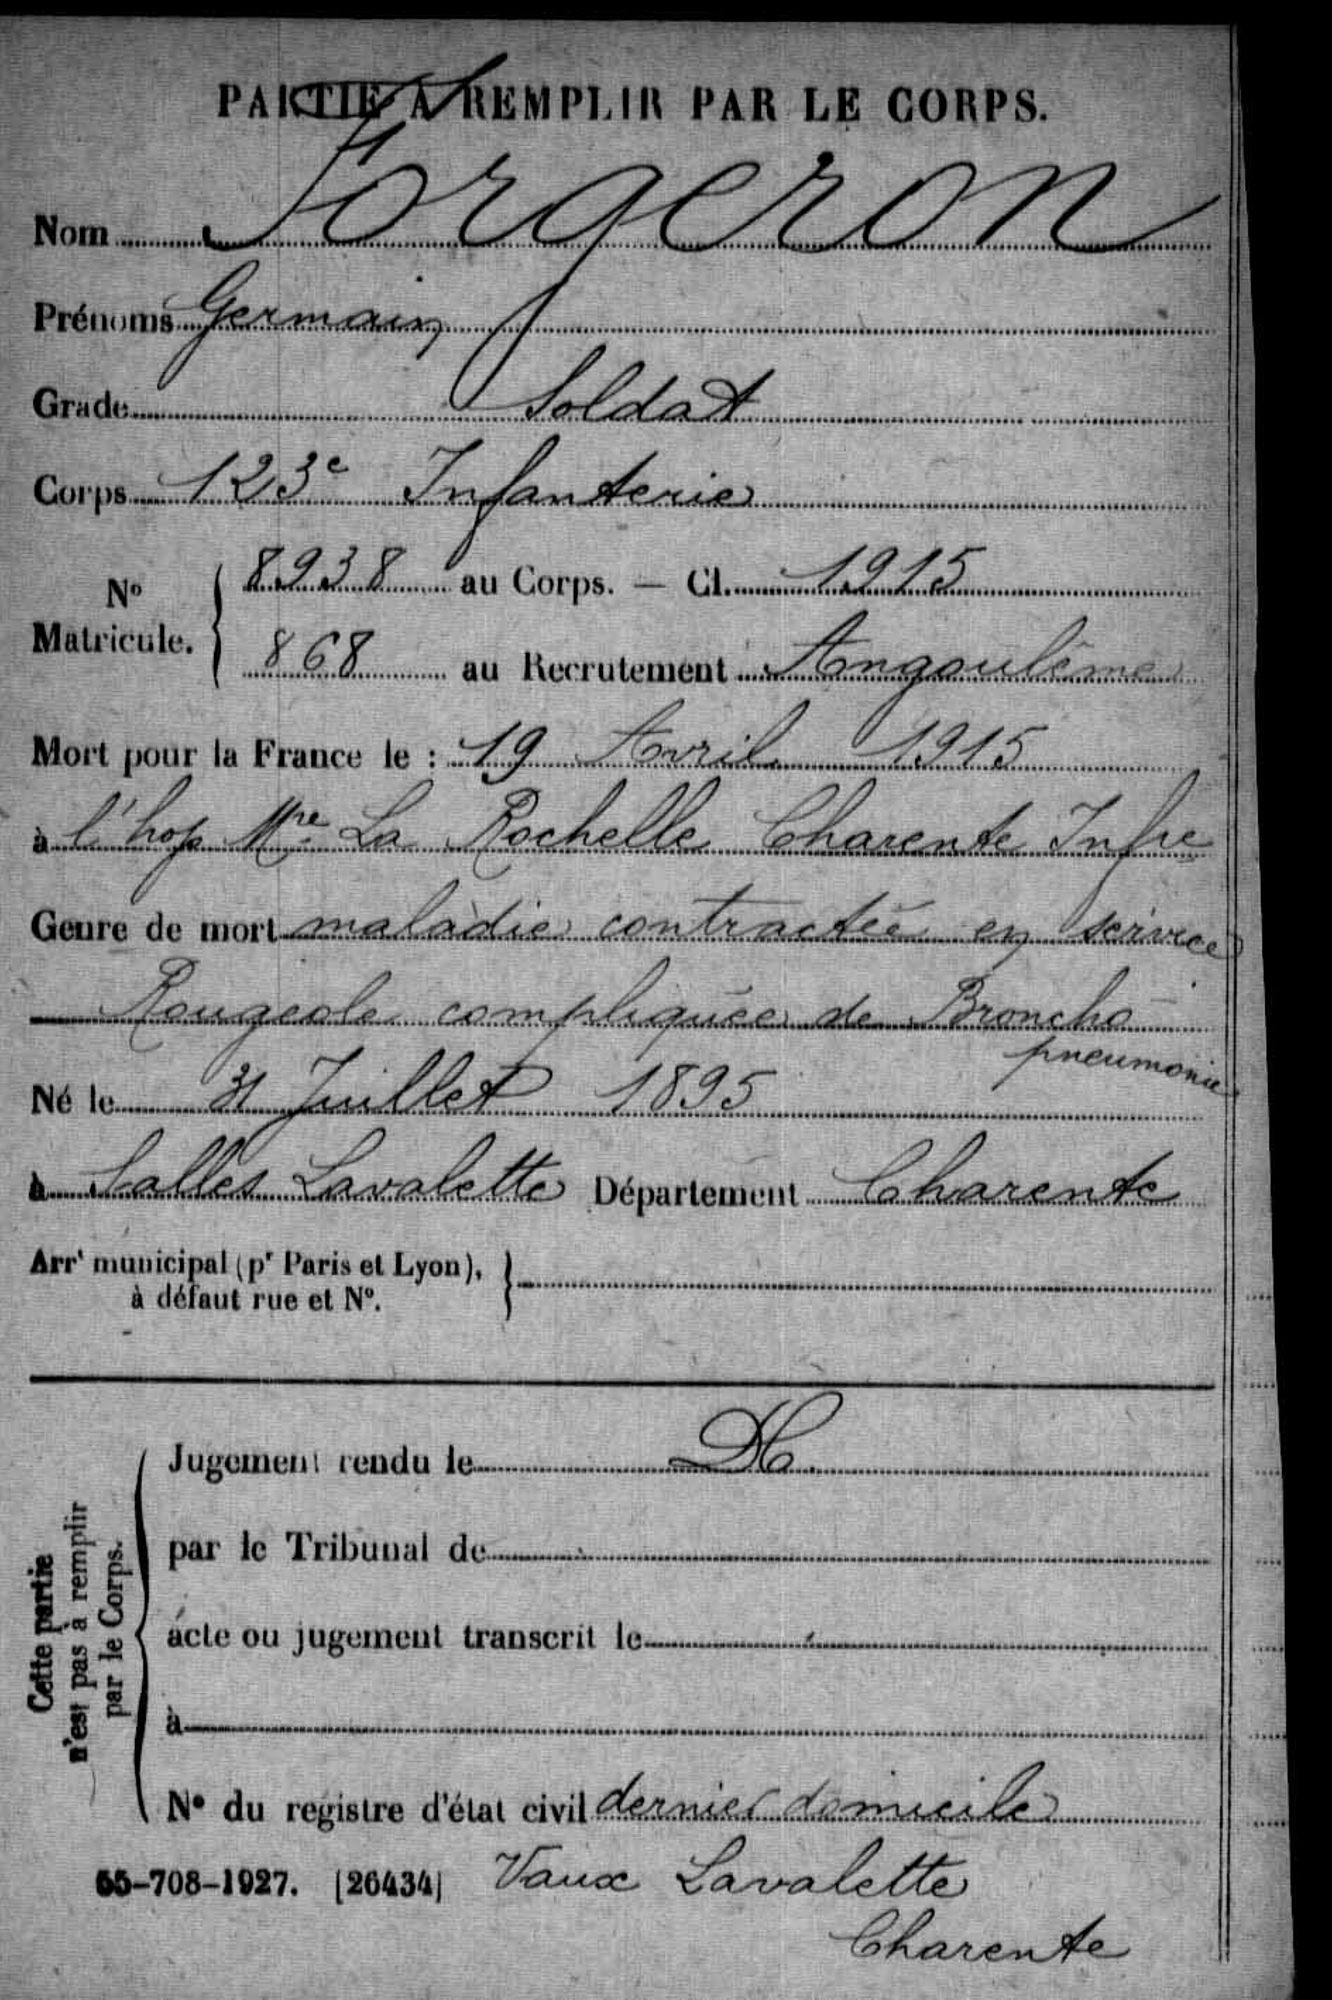 PARTIE A REMPLIR PAR LE CORPS.
Nom Forgeron
Prénoms Germain
Grade Soldat
Corps 123e Infanterie
No Matricule. { 8938 au Corps. — Cl. 1915
868 au Recrutement Angoulême
Mort pour la France le : 19 Avril 1915
à l'hop Mre La Rochelle Charente Infre
Genre de mort maladie contractée en service
Rougeole compliquée de Broncho
pneumonie
Né le 31 Juillet 1895
à Salles Lavalette Département Charente
Arrt municipal (pr Paris et Lyon),
à défaut rue et No.
Cette partie
n'est pas à remplir
par le Corps.
Jugement rendu le
par le Tribunal de
acte ou jugement transcrit le
à
No du registre d'état civil dernier domicile
55-708-1927. [26434] Vaux Lavalette
Charente